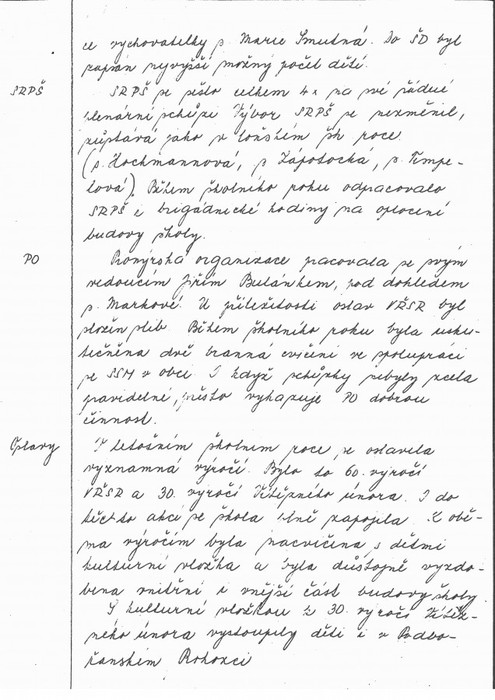 ce vychovatelky s. Marie Smutná. Do ŠD byl
zapsán nejvyšší možný počet dětí.
SRPŠ
SRPŠ se sešlo celkem 4x na své řádné
plenární schůzi. Výbor SRPŠ se nezměnil,
zůstává jako v loňském šk. roce
(s. Hochmannová, s. Zápotocká, s. Timpe-
lová). Během školního roku odpracovalo
SRPŠ i brigádnické hodiny na oplocení
budovy školy.
PO
Pionýrská organizace pracovala se svým
vedoucím Jiřím Bulánkem, pod dohledem
s. Markové. U příležitosti oslav VŘSR byl
složen slib. Během školního roku byla usku-
tečněna dvě branná cvičení ve spolupráci
se SSM v obci. I když schůzky nebyly zcela
pravidelné, přesto vykazuje PO dobrou
činnost.
Oslavy
V letošním školním roce se oslavila
významná výročí. Bylo to 60. výročí
VŘSR a 30. výročí Vítězného února. I do
těchto akcí se škola plně zapojila. K obě-
ma výročím byla nacvičena s dětmi
kulturní vložka a byla důstojně vyzdo-
bena vnitřní i vnější část budovy školy.
S kulturní vložkou k 30. výročí Vítěz-
ného února vystoupily děti i v Podbo-
řanském Rohozci